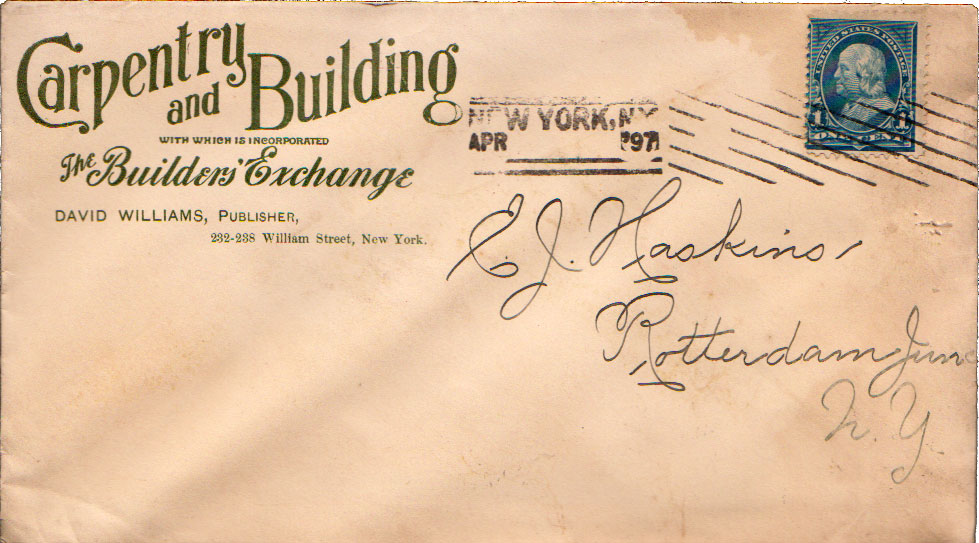 Carpentry
and Building
WITH WHICH IS INCORPORATED
The Builders' Exchange
DAVID WILLIAMS, PUBLISHER,
232-238 William Street, New York.
NEW YORK, N.Y.
APR
UNITED STATES POSTAGE
1 1
E. J. Haskins
Rotterdam Junc
N. Y.